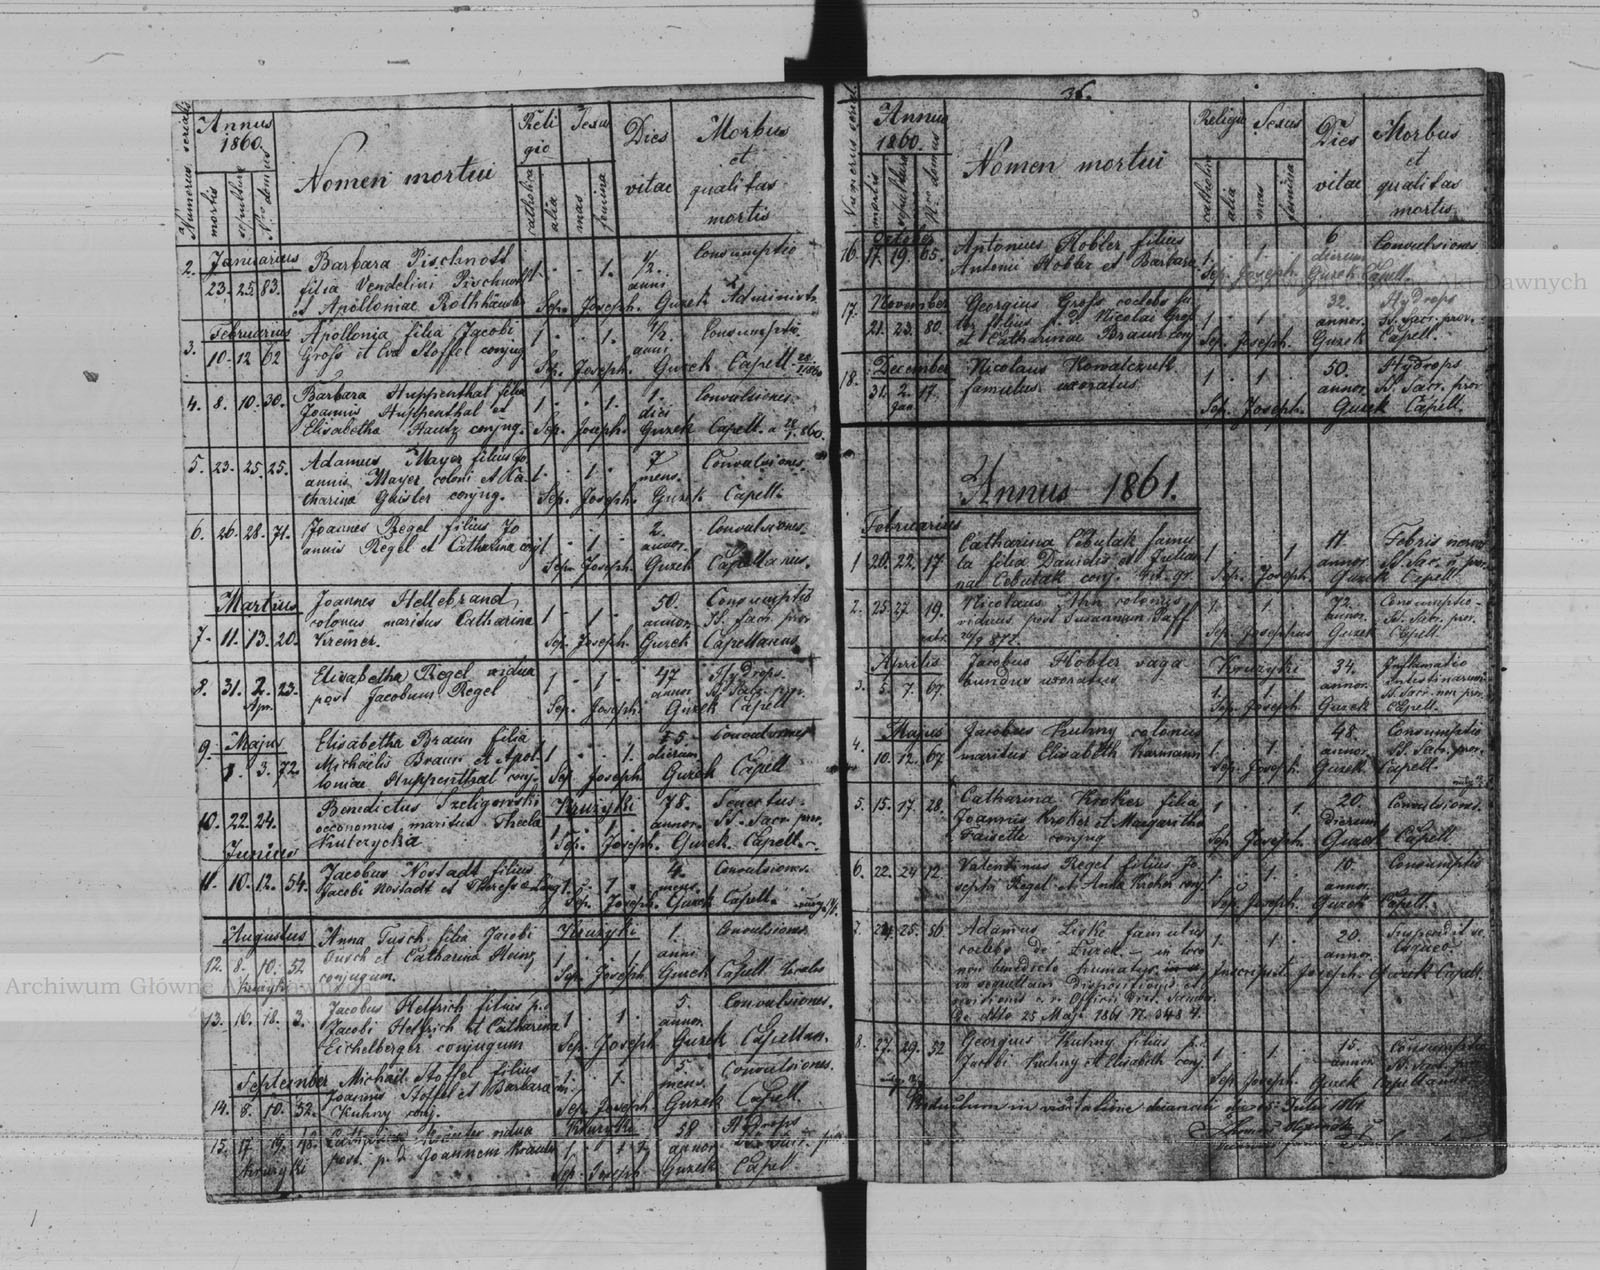 Numerus serialis
Annus 1860.
mortis
sepulturae
Nrus domus
Nomen mortui
Religio
catholica
alia
Sexus
mas
femina
Dies vitae
Morbus et qualitas mortis
Januarius
2. 23. 25. 83. Barbara Pischnott 1 - - 1. 1/2. Consumptio
filia Vendelini Pischnott anni
et Apolloniae Rothhänsler Sep. Joseph. Guzek Administr.
Februarius
3. 10. 12. 62 Apollonia filia Jacobi 1 . . 1. 1/2. Consumptio
Gross et Eva Stoffel conjug. anni
Sep. Joseph. Guzek Capell.
4. 8. 10. 30. Barbara Huppenthal filia 1 . . 1. 1. Convulsiones.
Joannis Huppenthal et diei
Elisabetha Hautz conjug. Sep. Joseph. Guzek Capell.
5. 23. 25. 25. Adamus Mayer filius Jo 1 . 1 . 7 Convulsiones.
annis Mayer coloni et Ka mens.
tharina Geisler conjug. Sep. Joseph. Guzek Capell.
6. 26. 28. 71. Joannes Regel filius Jo 2. Convulsiones.
annis Regel et Catharina conj 1 . 1 . annor.
Sep. Joseph. Guzek Capellanus.
Martius
7. 11. 13. 20. Joannes Hellebrand 1 . 1 . 50. Consumptio
colonus maritus Catharina annor. SS. Sacr. prov.
Kremer. Sep. Joseph. Guzek Capellanus
8. 31. 2. 23. Elisabetha Regel vidua 1 . 1 . 47 Hydrops.
Apr. post Jacobum Regel annor SS. Sacr. prov.
Sep. Joseph. Guzek Capell
Majus
9. 1. 3. 72. Elisabetha Braun filia 1 . . 1. 15. Convulsiones
Michaelis Braun et Apol dierum
loniae Huppenthal conj. Sep. Joseph Guzek Capell
10. 22. 24. Benedictus Szeligowski Kruzyki 78. Senectus.
oeconomus maritus Thecla annor. SS. Sacr. prov.
Kulczycka Sep. Joseph. Guzek. Capell.
Junius
11. 10. 12. 54. Jacobus Nostadt filius 4. Convulsiones.
Jacobi Nostadt et Theresiae Lang 1. . 1 . mens.
Sep. Joseph. Guzek Capell.
Augustus
12. 8. 10. 52 Anna Tusch filia Jacobi Kruzyki 1. Convulsiones
Kruzyki Tusch et Catharina Heinz 1. anni
conjugum. Sep. Joseph Guzek Capell.
13. 16. 18. 3. Jacobus Helfrich filius p. d. 5. Convulsiones.
Jacobi Helfrich et Catharina 1 . 1 . annor.
Eichelberger conjugum Sep. Joseph Guzek Capellan.
September
14. 8. 10. 52. Michael Stoffel filius 5. Convulsiones.
Joannis Stoffel et Barbara 1. . 1. mens.
Kuhny conj. Sep. Joseph. Guzek Capell.
15. 17. 19. 48. vidua Kruzyki 58 Hydrops
Kruzyki post p. d. Joannem annor
Sep. Joseph Guzek Capell.
36.
Numerus serial.
Annus 1860.
mortis
sepulturae
Nrus domus
Nomen mortui
Religio
catholica
alia
Sexus
mas
femina
Dies vitae
Morbus et qualitas mortis
October
16. 17. 19. 65. Antonius Hobler filius 1. 1. 6 Convulsiones
Antonii Hobler et Barbara dierum
Sep. Joseph Guzek Capell.
November
17. 21. 23. 80. Georgius Gross coelebs fu 32. Hydrops
filius p. d. Nicolai Gross 1 . 1 . annor. SS. Sacr. prov.
et Catharinae Braun conj Sep. Joseph. Guzek Capell.
December
18. 31. 2. 17. Nicolaus Kowalczuk 1 . 1 . 50. Hydrops
Jan famulus uxoratus. annor. SS. Sacr. prov
Sep. Joseph. Guzek Capell.
Annus 1861.
Februarius
1 20. 22. 17 Catharina Cebulak famu 1 1 11. Febris nervo
la filia Danielis et Julian annor SS. Sac. n. prov.
nae Cebulak conj. rit. gr. Sep. Joseph. Guzek Capell.
2. 25. 27. 19. Nicolaus colonus 1. 1. 72. Consumptio
viduus post Susannam annor. SS. Sacr. prov.
Sep. Josephus Guzek Capell.
Aprilis
3. 5. 7. 67. Jacobus Hobler vaga Kruzyki 34. Inflamatio
bundus uxoratus. 1. 1. annor. intestinarum
Sep. Joseph. Guzek SS. Sacr. non prov. Capell.
Majus
4. 10. 12. 67 Jacobus Kuhny colonus 48. Consumptio
maritus Elisabeth Karmann 1. 1. annor. SS. Sacr. prov.
Sep. Joseph. Guzek Capell.
5. 15. 17. 28. Catharina Kroker filia 1 1. 20. Convulsiones.
Joannis Kroker et Margaritha dierum
conjug Sep. Joseph. Guzek Capell.
6. 22. 24 12 Valentinus Regel filius Jo 1. 1. 10. Consumptio
sephi Regel et Anna Kroker conj annor.
Sep. Joseph. Guzek Capell.
7. 25. 56 Adamus Liske famulus 1. 1. 20. Suspendit se
coelebs de Turek in loco annor. laqueo
non benedicto humatus Inscripsit Joseph. Guzek Capell.
in sequellam Dispositionis et
de dtto 25 Maji 1861 N. 3484.
8. 27. 29. 52 Georgius Kuhny filius p. d. 1. 1. 15. Consumptio
Jacobi Kuhny et Elisabeth conj annor SS. Sacr. prov
Sep. Joseph. Guzek Capellanus
Productum in visitatione decanali die 15 Julii 1861
Archiwum Główne Akt Dawnych
Archiwum Główne Akt Dawnych